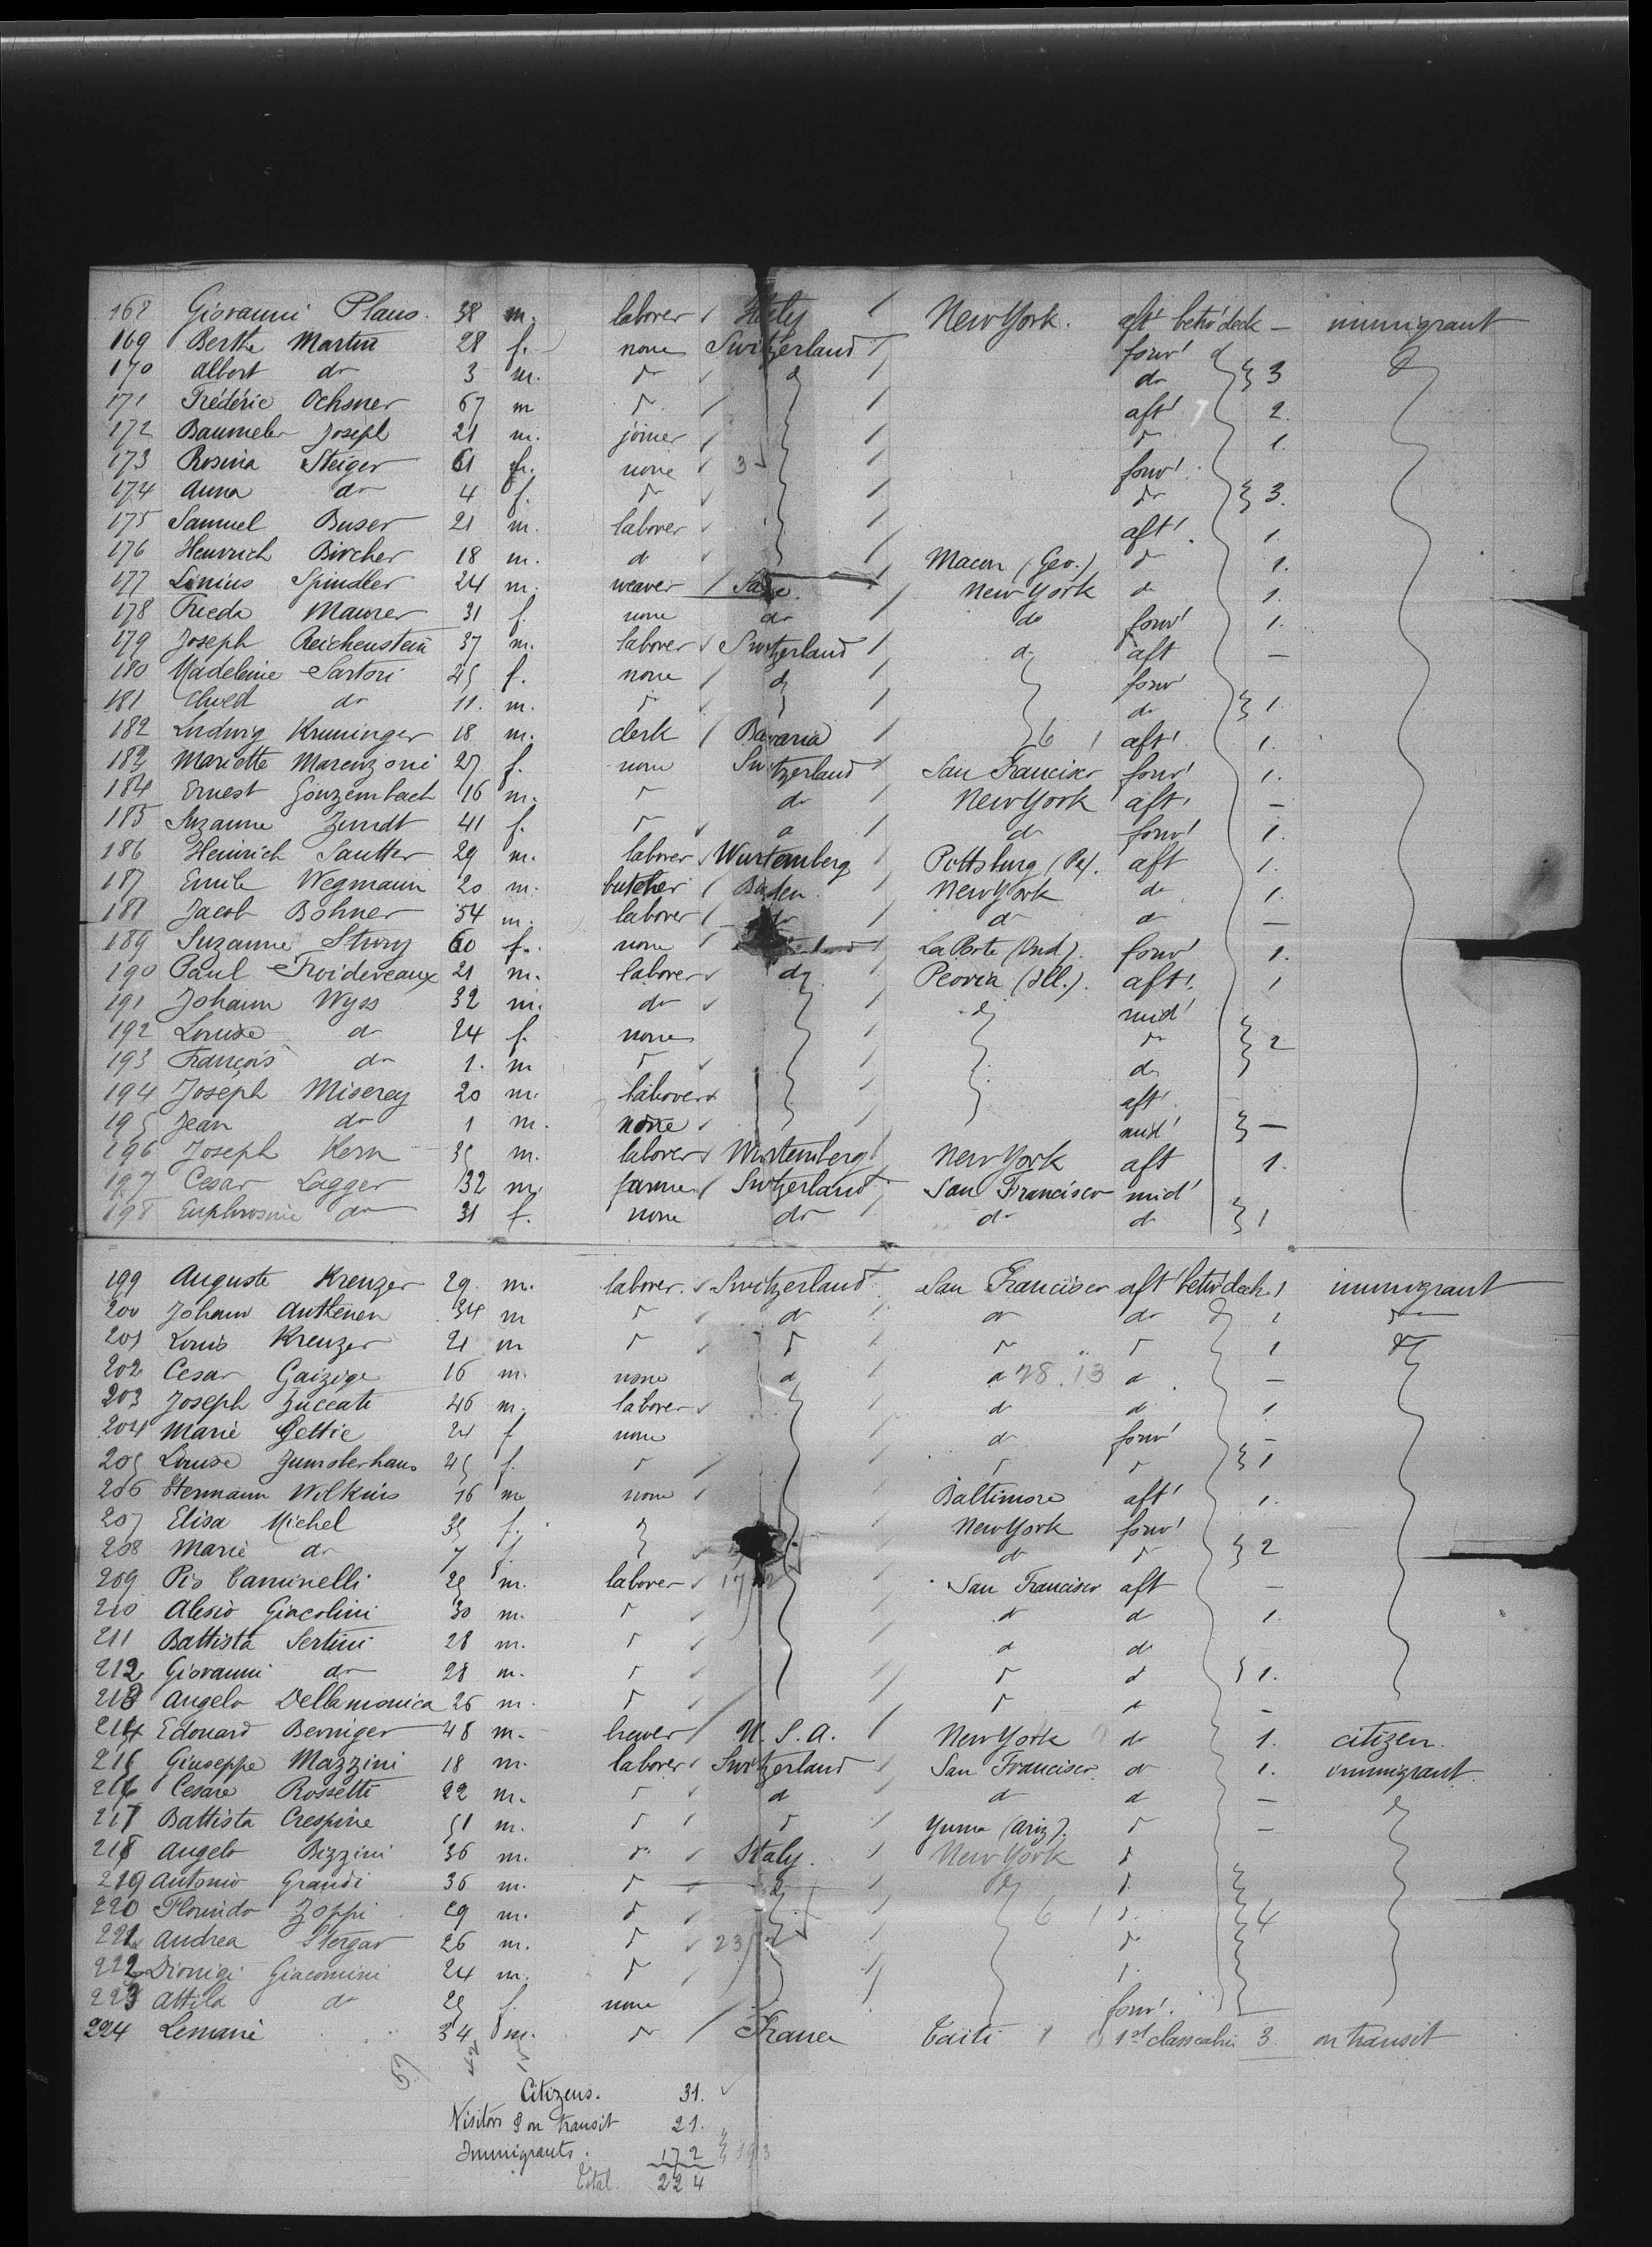 168 Giovanni Plano. 38 m. laborer Italy New York. aft' betw' deck — immigrant
169 Berthe Martin 28 f. none Switzerland forw' d
170 Albert do 3 m. do do do 3
171 Frédéric Ochsner 67 m do aft' 2.
172 Baumeler Joseph 21 m. joiner do 1.
173 Rosina Steiger 61 f. none 3 forw'
174 Anna do 4 f. do do 3.
175 Samuel Buser 21 m. laborer aft' 1.
176 Heinrich Bircher 18 m. do Macon (Geo.) do 1.
177 Linius Spindler 24 m. weaver New York do 1.
178 Frieda Maurer 31 f. none do do forw' 1.
179 Joseph Reichenstein 37 m. laborer Switzerland do aft —
180 Madeleine Sartori 45 f. none do forw'
181 do 11. m. do do 1.
182 Ludwig Kruninger 18 m. clerk Bavaria 6 1 aft' 1.
183 Mariette Marenzoni 27 f. none Switzerland San Francisco forw' 1.
184 Ernest Gonzenbach 16 m. do do New York aft' —
185 Suzanne Zundt 41 f. do do do forw' 1.
186 Heinrich Sautter 29 m. laborer Wurtemberg Pittsburg (Pa). aft 1.
187 Emile Wegmann 20 m. butcher Baden New York do 1.
188 Jacob Bohner 54 m. laborer do do do —
189 Suzanne Stury 60 f. none La Porte (Ind). forw' 1.
190 Paul Froideveaux 21 m. laborer do Peoria (Ill.). aft'. 1
191 Johann Wyss 32 m. do do mid'
192 Louise do 24 f. none do 2
193 François do 1. m do do
194 Joseph Miserey 20 m. laborer aft'
195 Jean do 1 m. none mid' —
196 Joseph Kern 35 m. laborer Wurtemberg New York aft 1.
197 Cesar Lagger 32 m. farmer Switzerland San Francisco mid'
198 Euphrosine do 31 f. none do do do 1
199 Auguste Kreuzer 29. m. laborer. Switzerland San Francisco aft' betw' deck 1 immigrant
200 Johann Anthenen 34 m do do do do 1 do
201 Louis Kreuzer 21 m do do do do 1 do
202 Cesar Gaizige 16 m. none do do 28 .13 do —
203 Joseph Zuccati 46 m. laborer do do 1
204 Marie Gettie 24 f none do forw' —
205 Louise Zumoberhaus 45 f. do do do 1
206 Hermann Wilkins 16 m none Baltimore aft' 1.
207 Elisa Michel 35 f. do New York forw'
208 Marie do 7 f. do do 2
209 Pio Caminelli 25 m. laborer San Francisco aft —
210 Alesio Giacolini 30 m. do do do 1.
211 Battista Sertini 28 m. do do do
212 Giovanni do 28 m. do do do 1.
213 Angelo Dellamonica 26 m. do do do —
214 Edouard Berniger 48 m. U. S. A. New York do 1. citizen.
215 Giuseppe Mazzini 18 m. laborer Switzerland San Francisco. do 1. immigrant
216 Cesare Rossetti 22 m. do do do do — do
217 Battista Crespine 51 m. do do Yuma (Ariz). do —
218 Angelo Bizzini 36 m. do Italy. New York do
219 Antonio Grandi 36 m. do do do do
220 Florindo Zoppi 29 m. do 6 1 do 4
221 Andrea Stergar 26 m. do 23 do
222 Dionigi Giacomini 24 m. do do
223 Attila do 25 f. none forw'.
224 Lemarie 34 m. do France Taïti 1 1st class cabin 3 on transit
Citizens. 31.
Visitors & on transit 21.
Immigrants. 172 193
Total. 224